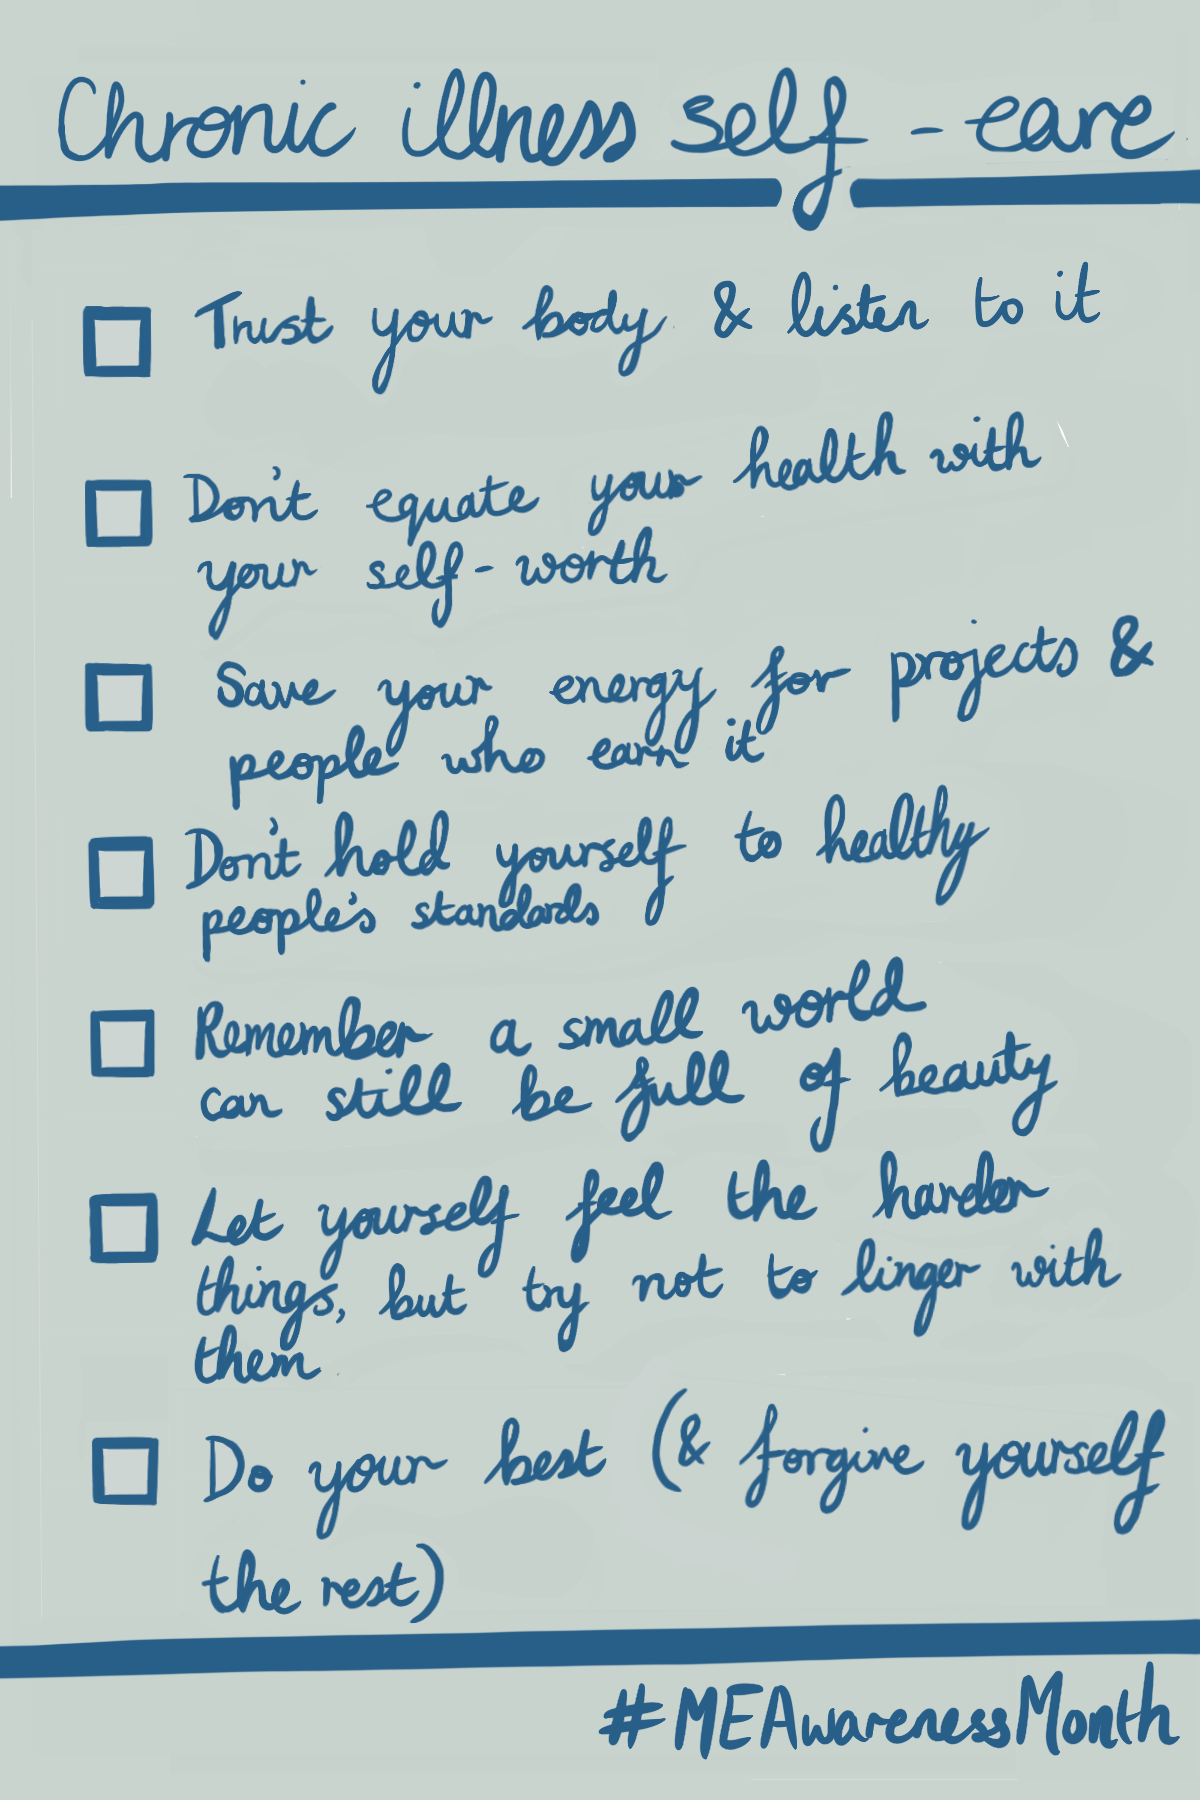 Chronic illness self-care
Trust your body & listen to it
Don't equate your health with
your self-worth
Save your energy for projects &
people who earn it
Don't hold yourself to healthy
people's standards
Remember a small world
can still be full of beauty
Let yourself feel the harder
things, but try not to linger with
them
Do your best (& forgive yourself
the rest)
#MEAwarenessMonth